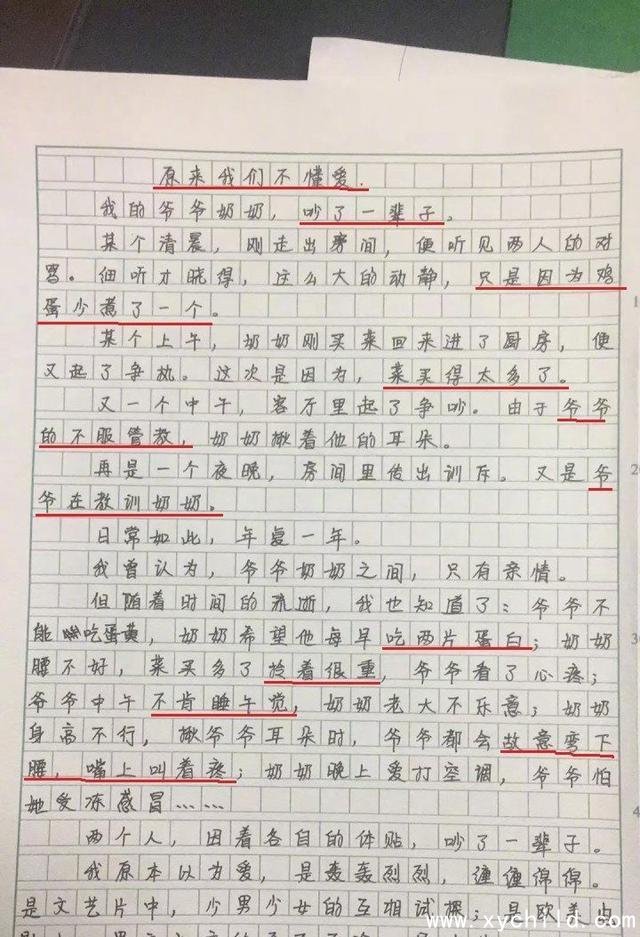 原来我们不懂爱.
我的爷爷奶奶，吵了一辈子。
某个清晨，刚走出房间，便听见两人的对
骂。细听才晓得，这么大的动静，只是因为鸡
蛋少煮了一个。
某个上午，奶奶刚买菜回来进了厨房，便
又起了争执。这次是因为，菜买得太多了。
又一个中午，客厅里起了争吵。由于爷爷
的不服管教，奶奶揪着他的耳朵。
再是一个夜晚，房间里传出训斥。又是爷
爷在教训奶奶。
日常如此，年复一年。
我曾认为，爷爷奶奶之间，只有亲情。
但随着时间的流逝，我也知道了：爷爷不
能吃蛋黄，奶奶希望他每早吃两片蛋白；奶奶
腰不好，菜买多了拎着很重，爷爷看了心疼；
爷爷中午不肯睡午觉，奶奶老大不乐意；奶奶
身高不行，揪爷爷耳朵时，爷爷都会故意弯下
腰，嘴上叫着疼；奶奶晚上爱打空调，爷爷怕
她受冻感冒……
两个人，因着各自的体贴，吵了一辈子。
我原本以为爱，是轰轰烈烈，缠缠绵绵。
是文艺片中，少男少女的互相试探；是欧美
www.xychild.com